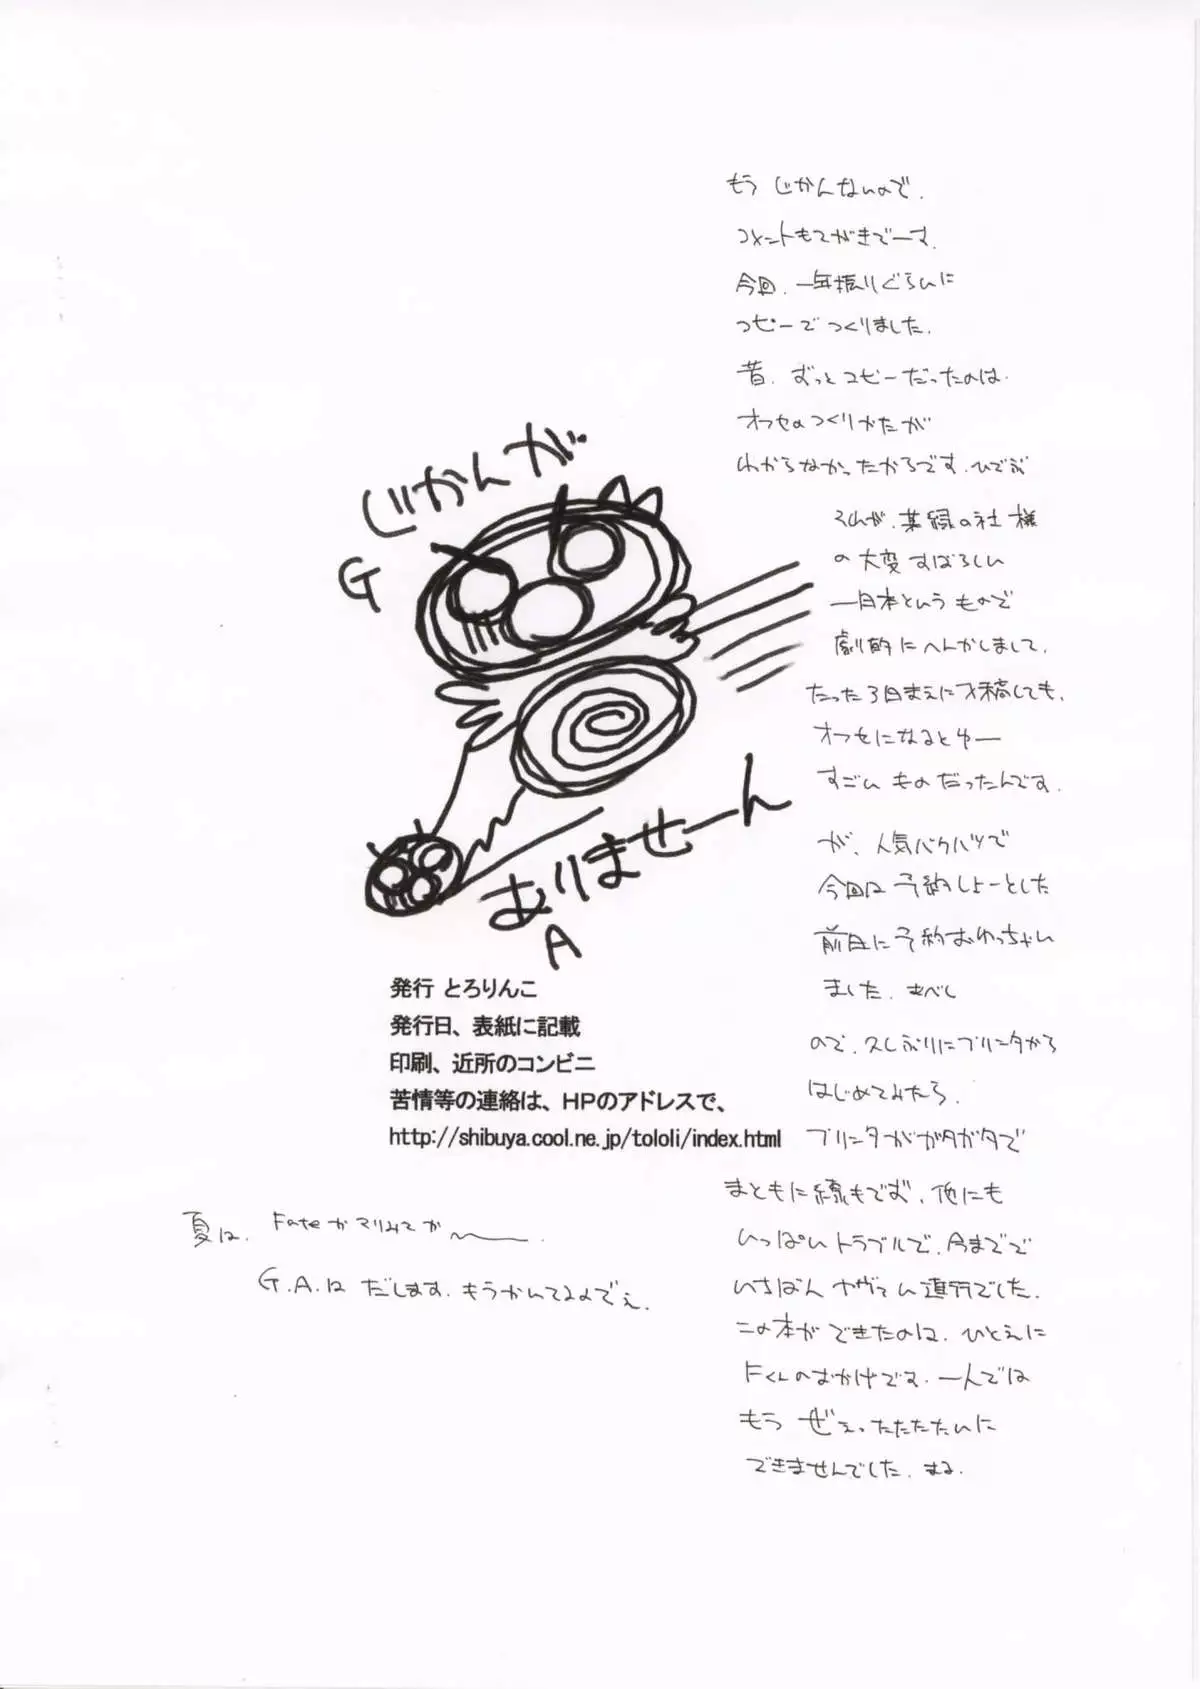 もう じかんないので.
コメントもてがきでーす.
今回. 一年振りぐらいに
コピーでつくりました.
昔. ずっとコピーだったのは.
オフセのつくりかたが
わからなかったからです. ひでぶ
それが. 葉緑の社様
の大変すばらしい
一日本というもので
劇的にへんかしまして.
たった3日まえに入稿しても.
オフセになるとゆー
すごい ものだったんです.
が、人気バクハツで
今回は予約しよーとした
前日に予約おわっちゃい
ました. まべし
ので. 久しぶりにプリンタから
はじめてみたら.
プリンタがガタガタで
まともに線もでず. 他にも
いっぱいトラブルで. 今までで
いちばん ヤヴァい進行でした.
この本ができたのは. ひとえに
Fくんのおかげです. 一人では
もう ぜぇったたたたいに
できませんでした. まる.
じかんが
G
ありませーん
A
発行 とろりんこ
発行日、表紙に記載
印刷、近所のコンビニ
苦情等の連絡は、HPのアドレスで、
http://shibuya.cool.ne.jp/tololi/index.html
夏は. Fateかマリみてか〜.
G.A.は だします. もうかいてるのでぇ.